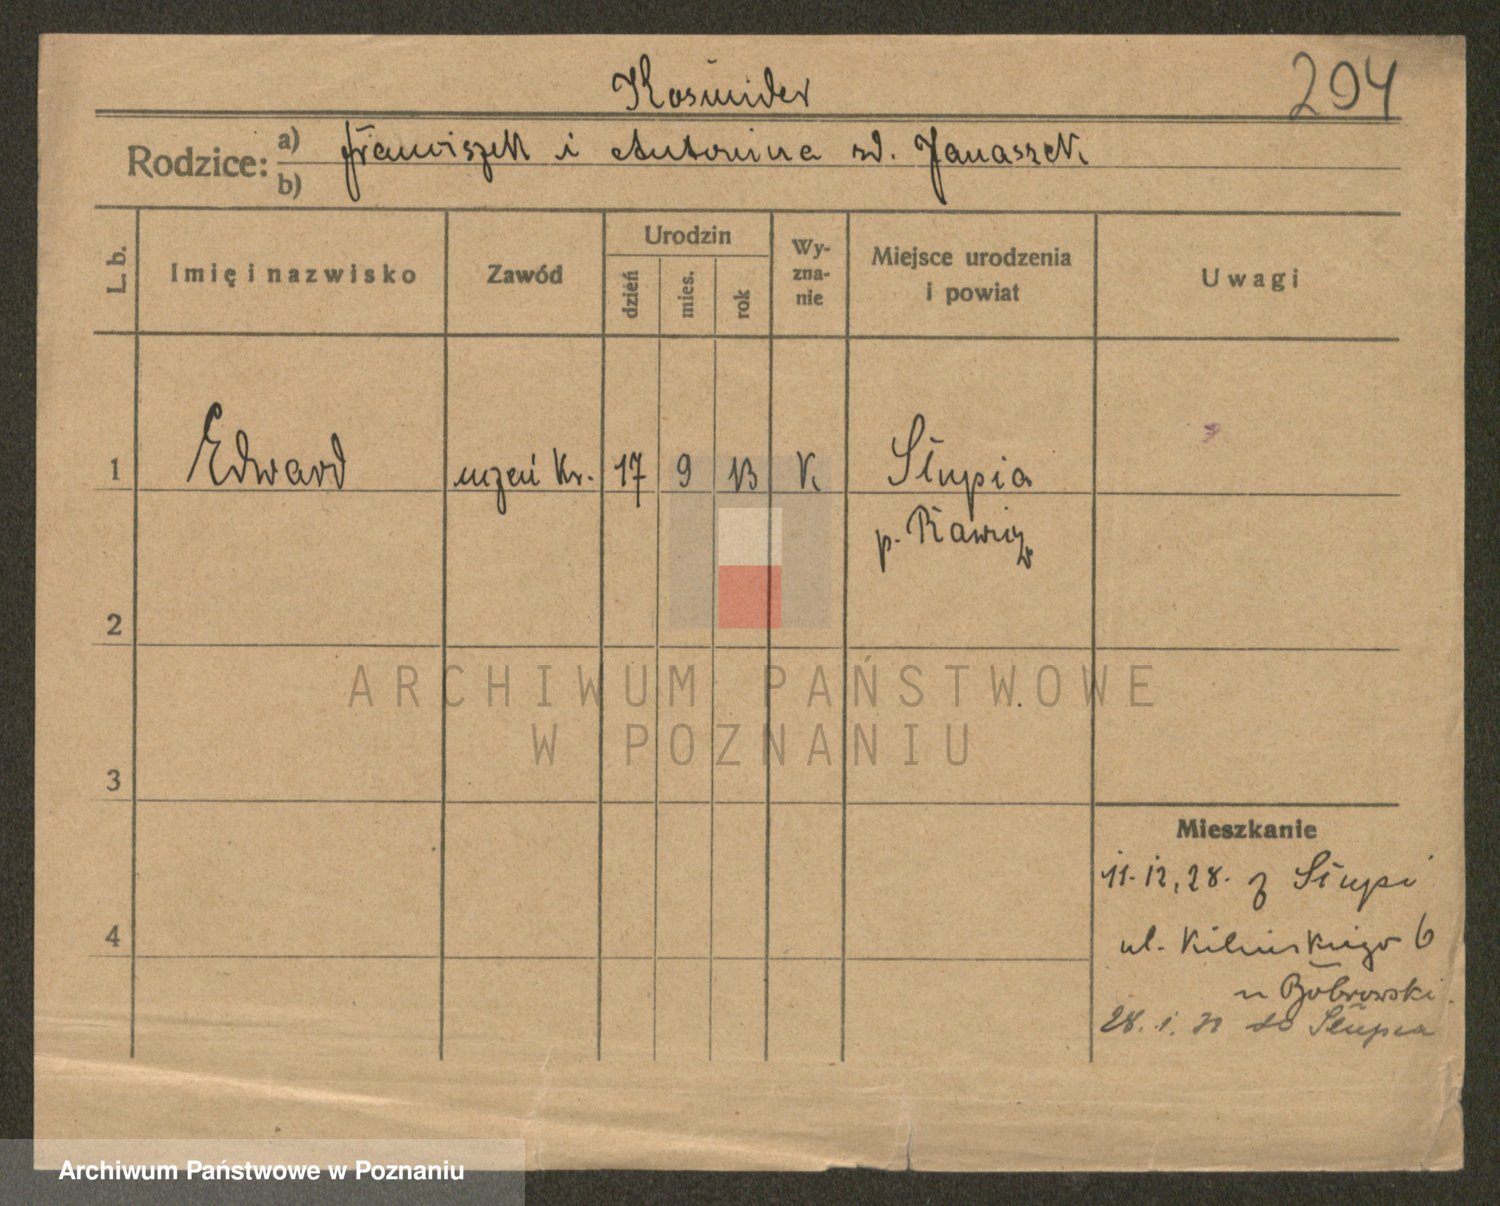 Kośmider
204
Rodzice: a) Franciszek i Antonina zd. Janaszek
b)
L. b.
Imię i nazwisko
Zawód
Urodzin
dzień
mies.
rok
Wy-
zna-
nie
Miejsce urodzenia
i powiat
Uwagi
1 Edward uczeń kr. 17 9 13 K. Słupia
p. Rawicz
2
3
4
Mieszkanie
11.12.28. z Słupi
ul. Kilińskiego 6
u Bobrowski
28.1. do Słupia
ARCHIWUM PAŃSTWOWE
W POZNANIU
Archiwum Państwowe w Poznaniu